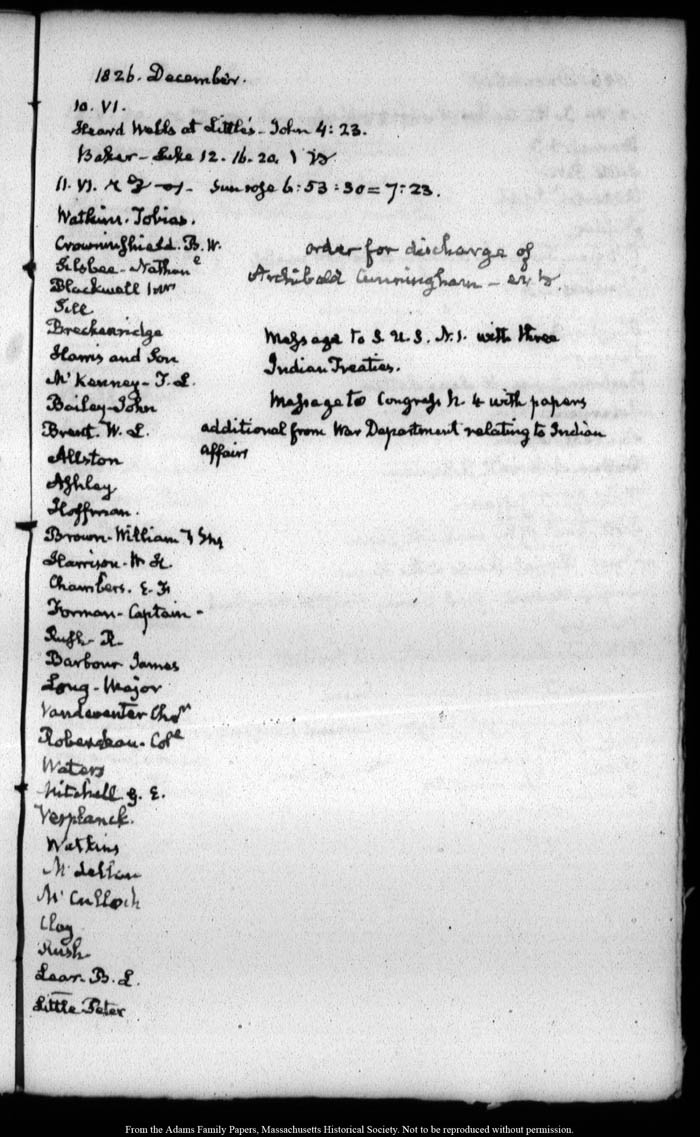 1826. December.
10. VI.
Heard Wells at Little's - John 4: 23.
Baker - Luke 12. 16-20.
11. VI. Sun rose 6: 53: 30 = 7: 23.
Watkins. Tobias.
Crowninshield. B. W.
Silsbee - Nathan^e
Blackwell
Sill
Breckenridge
Harris and Son
M^cKenney - T. L.
Bailey John
Brent. W. L.
Allston
Ashley
Hoffman.
Brown - William
Harrison - W. H.
Chambers. E. F
Forman - Captain -
Rush - R.
Barbour James
Long - Major
Vandeventer
Roberdeau - Col^l
Waters
Mitchell G. E.
Verplanck.
Watkins
M^cCulloch
Clay
Rush
Lear. B. L.
Little Peter
order for discharge of
Archibald Cunningham -
Message to S. U. S. N. 1. with three
Indian Treaties.
Message to Congress N. 4 with papers
additional from War Department relating to Indian
affairs
From the Adams Family Papers, Massachusetts Historical Society. Not to be reproduced without permission.